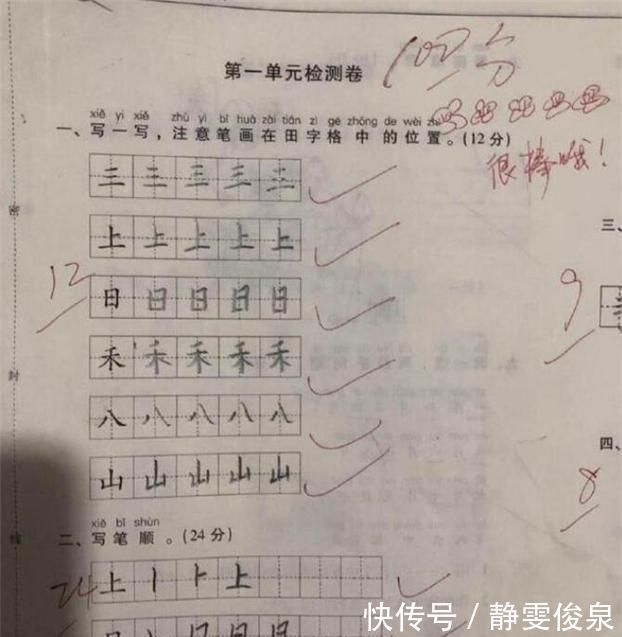 第一单元检测卷
100分
xiě yi xiě zhù yì bǐ huà zài tián zì gé zhōng de wèi zhi
一、写一写，注意笔画在田字格中的位置。(12分)
很棒哦！
三 三 三 三 三
上 上 上 上 上
12
日 日 日 日 日
禾 禾 禾 禾 禾
八 八 八 八 八
山 山 山 山 山
xiě bǐ shùn
二、写笔顺。(24分)
24
上 丨 ⺊ 上
三、
9
四、
8
密
封
线
快传号 / 静雯俊泉